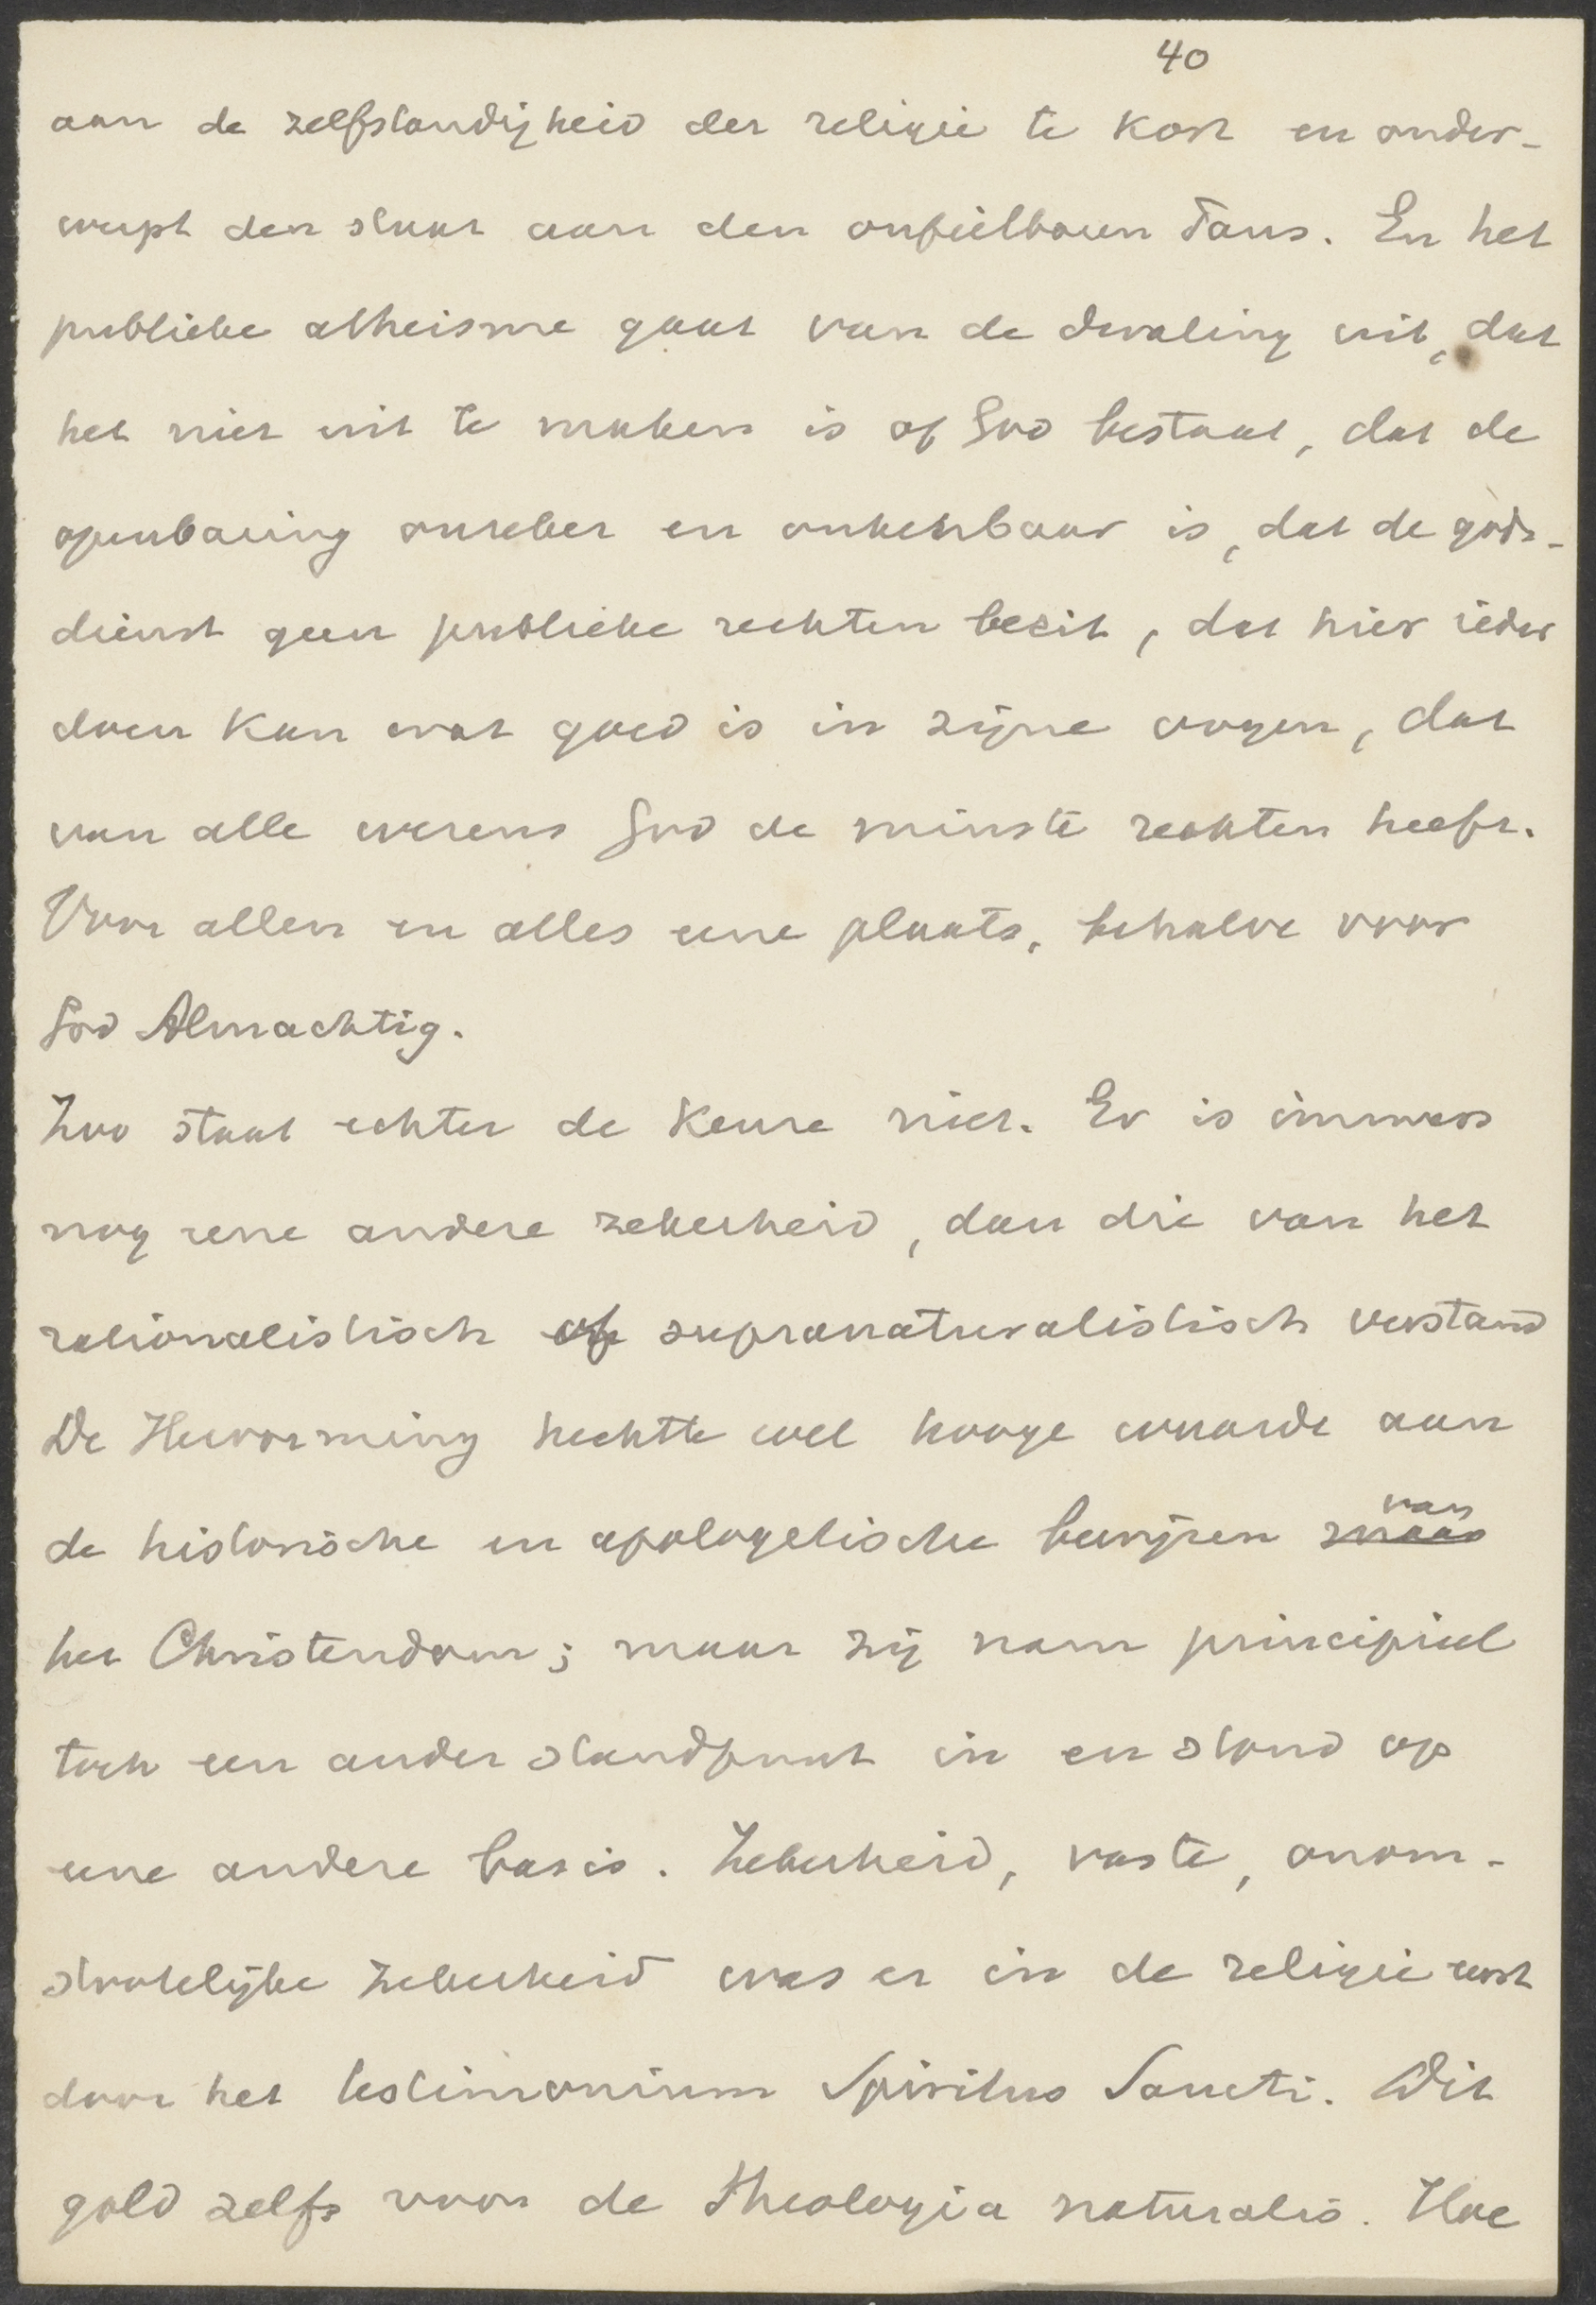 40
aan de zelfstandigheid der religie te kort en onder-
werpt den staat aan den onfeilbaren Paus. En het
publieke atheisme gaat van de dwaling uit, dat
het niet uit te maken is of God bestaat, dat de
openbaring onzeker en onkenbaar is, dat de gods-
dienst geen publieke rechten bezit, dat hier ieder
doen kan wat goed is in zijne oogen, dat
van alle wezens God de minste rechten heeft.
Voor allen en alles eene plaats, behalve voor
God Almachtig.
Zoo staat echter de keuze niet. Er is immers
nog eene andere zekerheid, dan die van het
rationalistisch of supranaturalistisch verstand
De Hervorming hechtte wel hooge waarde aan
de historische en apologetische bewijzen van
het Christendom; maar zij nam principieel
toch een ander standpunt in en stond op
eene andere basis. Zekerheid, vaste, onom-
stootelijke zekerheid was er in de religie eerst
door het testimonium Spiritus Sancti. Dit
gold zelfs voor de theologia naturalis. Hoe